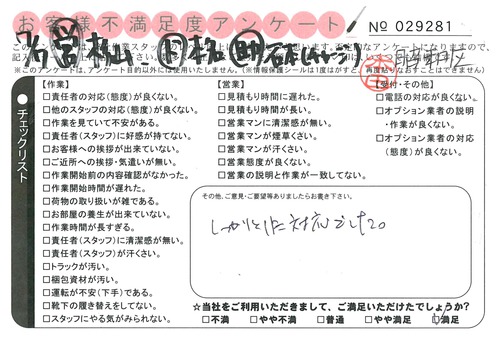 お客様不満足度アンケート
№ 029281
※このアンケートは、アンケート目的以外には使用いたしません。(※情報保護シールは1度はがすと、再度貼りなおすことはできません)
チェックリスト
【作業】
□責任者の対応(態度)が良くない。
□他のスタッフの対応(態度)が良くない。
□作業を見ていて不安がある。
□責任者(スタッフ)に好感が持てない。
□お客様への挨拶が出来ていない。
□ご近所への挨拶・気遣いが無い。
□作業開始前の内容確認がなかった。
□作業開始時間が遅れた。
□荷物の取り扱いが雑である。
□お部屋の養生が出来ていない。
□作業時間が長すぎる。
□責任者(スタッフ)に清潔感が無い。
□責任者(スタッフ)が汗くさい。
□トラックが汚い。
□梱包資材が汚い。
□運転が不安(下手)である。
□靴下の履き替えをしてない。
□スタッフにやる気がみられない。
【営業】
□見積もり時間に遅れた。
□見積もり時間が長い。
□営業マンに清潔感が無い。
□営業マンが煙草くさい。
□営業マンが汗くさい。
□営業態度が良くない。
□営業の説明と作業が一致してない。
【受付・その他】
□電話の対応が良くない。
□オプション業者の説明
・作業が良くない。
□オプション業者の対応
(態度)が良くない。
その他、ご意見・ご要望等ありましたらお書き下さい。
しっかりとした対応でした。
☆当社をご利用いただきまして、ご満足いただけたでしょうか?
□不満 □やや不満 □普通 □やや満足 □満足